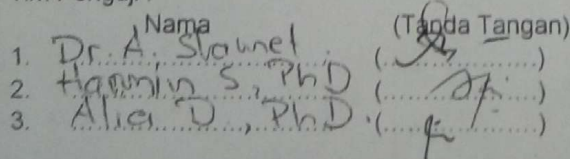 Nama (Tanda Tangan)
1. Dr. A. Slamet (............)
2. Harmin S, PhD (............)
3. Alia D, PhD. (............)